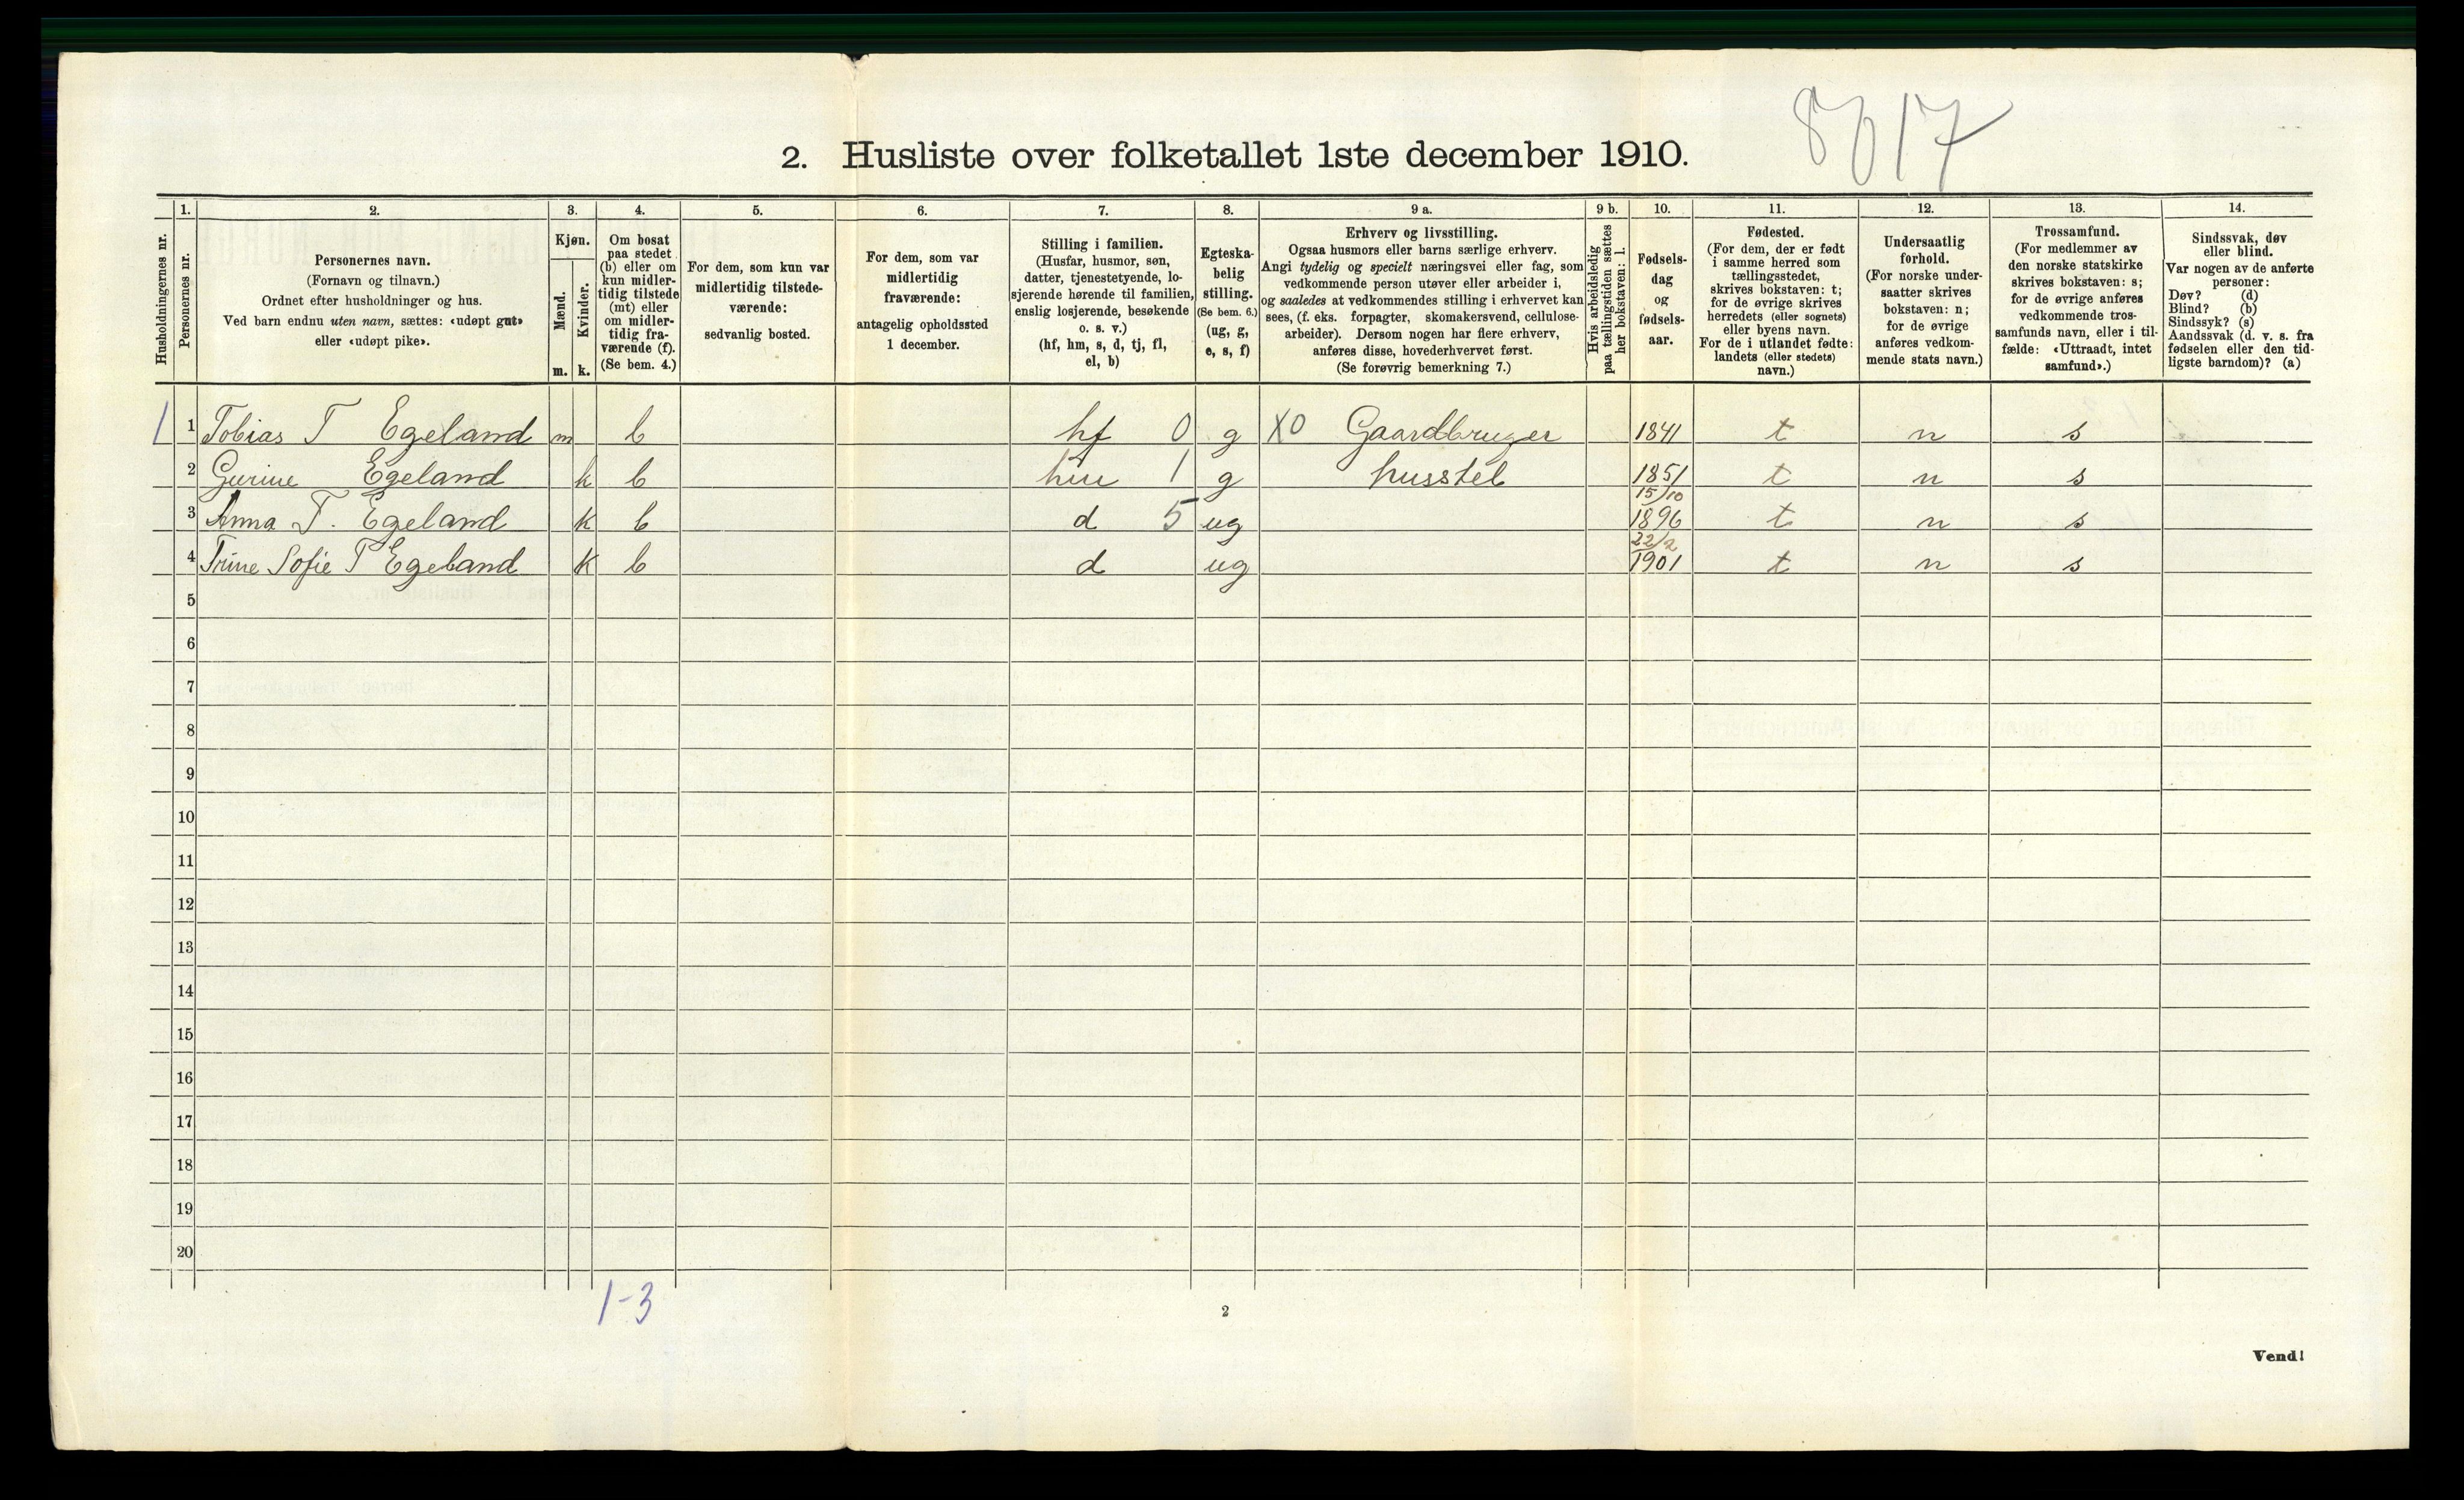 8017
2. Husliste over folketallet 1ste december 1910.
Husholdningernes nr.
1.
Personernes nr.
2.
Personernes navn.
(Fornavn og tilnavn.)
Ordnet efter husholdninger og hus.
Ved barn endnu uten navn, sættes: «udøpt gut»
eller «udøpt pike».
3.
Kjøn.
Mænd.
Kvinder.
m. k.
4.
Om bosat
paa stedet
(b) eller om
kun midler-
tidig tilstede
(mt) eller
om midler-
tidig fra-
værende (f).
(Se bem. 4.)
5.
For dem, som kun var
midlertidig tilstede-
værende:
sedvanlig bosted.
6.
For dem, som var
midlertidig
fraværende:
antagelig opholdssted
1 december.
7.
Stilling i familien.
(Husfar, husmor, søn,
datter, tjenestetyende, lo-
sjerende hørende til familien,
enslig losjerende, besøkende
o. s. v.)
(hf, hm, s, d, tj, fl,
el, b)
8.
Egteska-
belig
stilling.
(Se bem. 6.)
(ug, g,
e, s, f)
9 a.
Erhverv og livsstilling.
Ogsaa husmors eller barns særlige erhverv.
Angi tydelig og specielt næringsvei eller fag, som
vedkommende person utøver eller arbeider i,
og saaledes at vedkommendes stilling i erhvervet kan
sees, (f. eks. forpagter, skomakersvend, cellulose-
arbeider). Dersom nogen har flere erhverv,
anføres disse, hovederhvervet først.
(Se forøvrig bemerkning 7.)
9 b.
Hvis arbeidsledig
paa tællingstiden sættes
her bokstaven: l.
10.
Fødsels-
dag
og
fødsels-
aar.
11.
Fødested.
(For dem, der er født
i samme herred som
tællingsstedet,
skrives bokstaven: t;
for de øvrige skrives
herredets (eller sognets)
eller byens navn.
For de i utlandet fødte:
landets (eller stedets)
navn.)
12.
Undersaatlig
forhold.
(For norske under-
saatter skrives
bokstaven: n;
for de øvrige
anføres vedkom-
mende stats navn.)
13.
Trossamfund.
(For medlemmer av
den norske statskirke
skrives bokstaven: s;
for de øvrige anføres
vedkommende tros-
samfunds navn, eller i til-
fælde: «Uttraadt, intet
samfund».)
14.
Sindssvak, døv
eller blind.
Var nogen av de anførte
personer:
Døv? (d)
Blind? (b)
Sindssyk? (s)
Aandssvak (d. v. s. fra
fødselen eller den tid-
ligste barndom)? (a)
1 1 Tobias T Egeland m b hf 0 g X0 Gaardbruger 1841 t n s
2 Gurine Egeland k b hm 1 g husstel 1851 t n s
3 Anna T. Egeland k b d 5 ug 15/10 1896 t n s
4 Trine Sofie T Egeland k b d ug 22/2 1901 t n s
5
6
7
8
9
10
11
12
13
14
15
16
17
18
19
20
1-3
2
Vend!